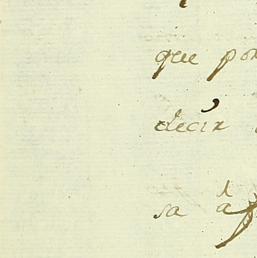 que por
decir
sa